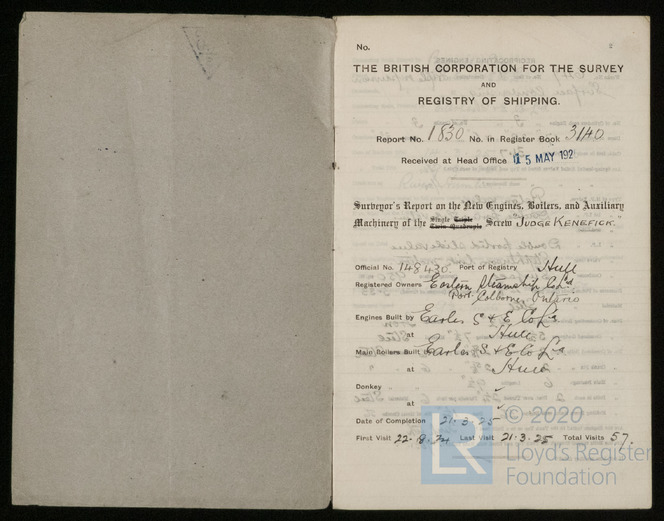 No.
THE BRITISH CORPORATION FOR THE SURVEY
AND
REGISTRY OF SHIPPING.
Report No. 1830 No. in Register Book 3140
Received at Head Office 15 MAY 192
Surveyor's Report on the New Engines, Boilers, and Auxiliary
Machinery of the Single Triple Twin Quadruple Screw "JUDGE KENEFICK."
Official No. 148430 Port of Registry Hull
Registered Owners Eastern Steamship Co Ld
Port Colborne, Ontario
Engines Built by Earles S & E Co Ld
at Hull
Main Boilers Built Earles S & E Co Ld
at Hull
Donkey
at
Date of Completion 21.3.25
First Visit 22.8.24 Last Visit 21.3.25 Total Visits 57.
LR © 2020
Lloyd's Register
Foundation